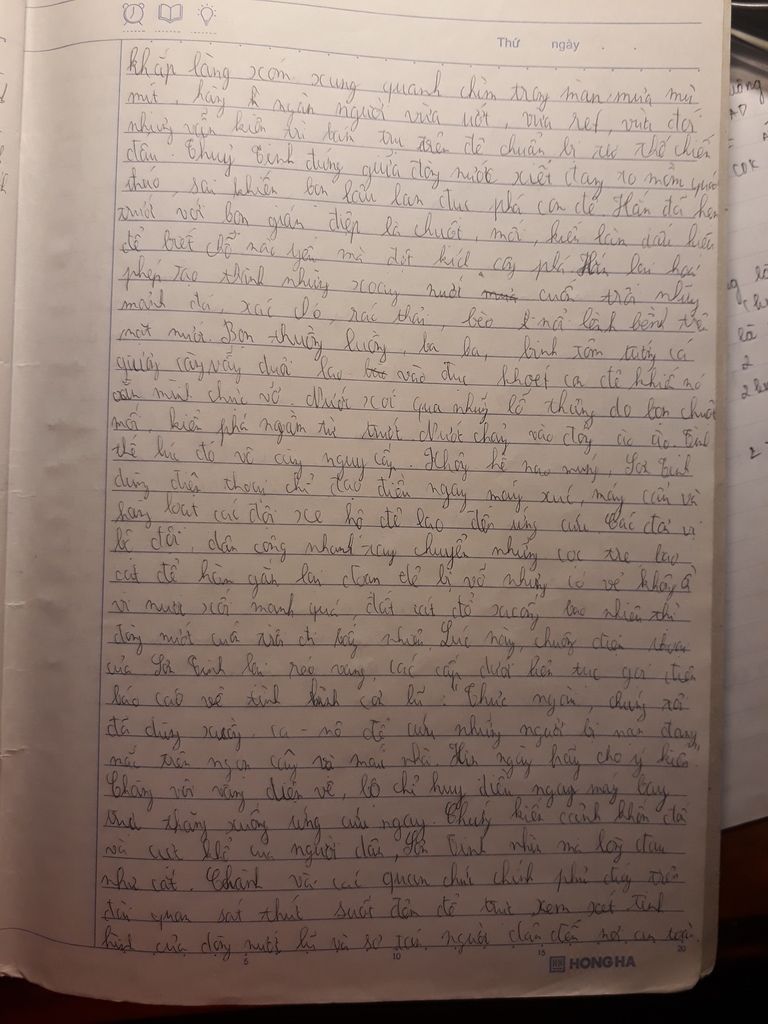 Thứ ngày . .
khắp làng xóm xung quanh chìm trong màn mưa mù
mịt, hàng ngàn người vừa ướt, vừa rét, vừa đói
nhưng vẫn kiên trì bám trụ trên đê chuẩn bị tư thế chiến
đấu. Thuỷ Tinh đứng giữa dòng nước xiết đang to mồm quát
tháo, sai khiến bọn lâu la đục phá con đê. Hắn đã hẹn
trước với bọn gián điệp là chuột, mối, kiến làm dấu hiệu
để biết chỗ nào yếu mà đột kích công phá. Hắn lại hoá
phép tạo thành những xoáy nước cuốn trôi những
mảnh đá, xác chó, rác thải, bèo lềnh bềnh trên
mặt nước. Bọn thuồng luồng, ba ba, binh tôm tướng cá
giương vây vẩy đuôi lao vào đục khoét con đê khiến nó
mình chực vỡ. Nước xói qua những lỗ thủng do bọn chuột
mối, kiến phá ngầm từ trước. Nước chảy vào đồng ào ào. Tình
thế lúc đó vô cùng nguy cấp. Không hề nao núng, Sơn Tinh
dùng điện thoại chỉ đạo điều ngay máy xúc, máy cẩu và
hàng loạt các đội xe hộ đê lao đến ứng cứu. Các đơn vị
bộ đội, dân công nhanh tay chuyển những cọc tre, bao
cát để hàm gắn lại đoạn đê bị vỡ nhưng có vẻ không ổn
vì nước xối mạnh quá, đất cát đổ xuống bao nhiêu thì
dòng nước cuốn trôi đi bấy nhiêu. Lúc này, chuông điện thoại
của Sơn Tinh lại reo vang, các cấp dưới liên tục gọi điện
báo cáo về tình hình cơn lũ: "Thưa ngài, chúng tôi
đã dùng xuồng, ca-nô để cứu những người bị nạn đang
mắc trên ngọn cây và mái nhà. Xin ngài hãy cho ý kiến".
Chàng vội vàng điện về, bộ chỉ huy điều ngay máy bay
trực thăng xuống ứng cứu ngay. Chứng kiến cảnh khốn đốn
và cực khổ của người dân, Sơn Tinh nhìn mà lòng đau
như cắt. Chàng và các quan chức chính phủ đứng trên
đài quan sát thức suốt đêm để trực xem xét tình
hình của dòng nước lũ và sơ tán người dân đến nơi an toàn.
5 10 15 20
HONG HA